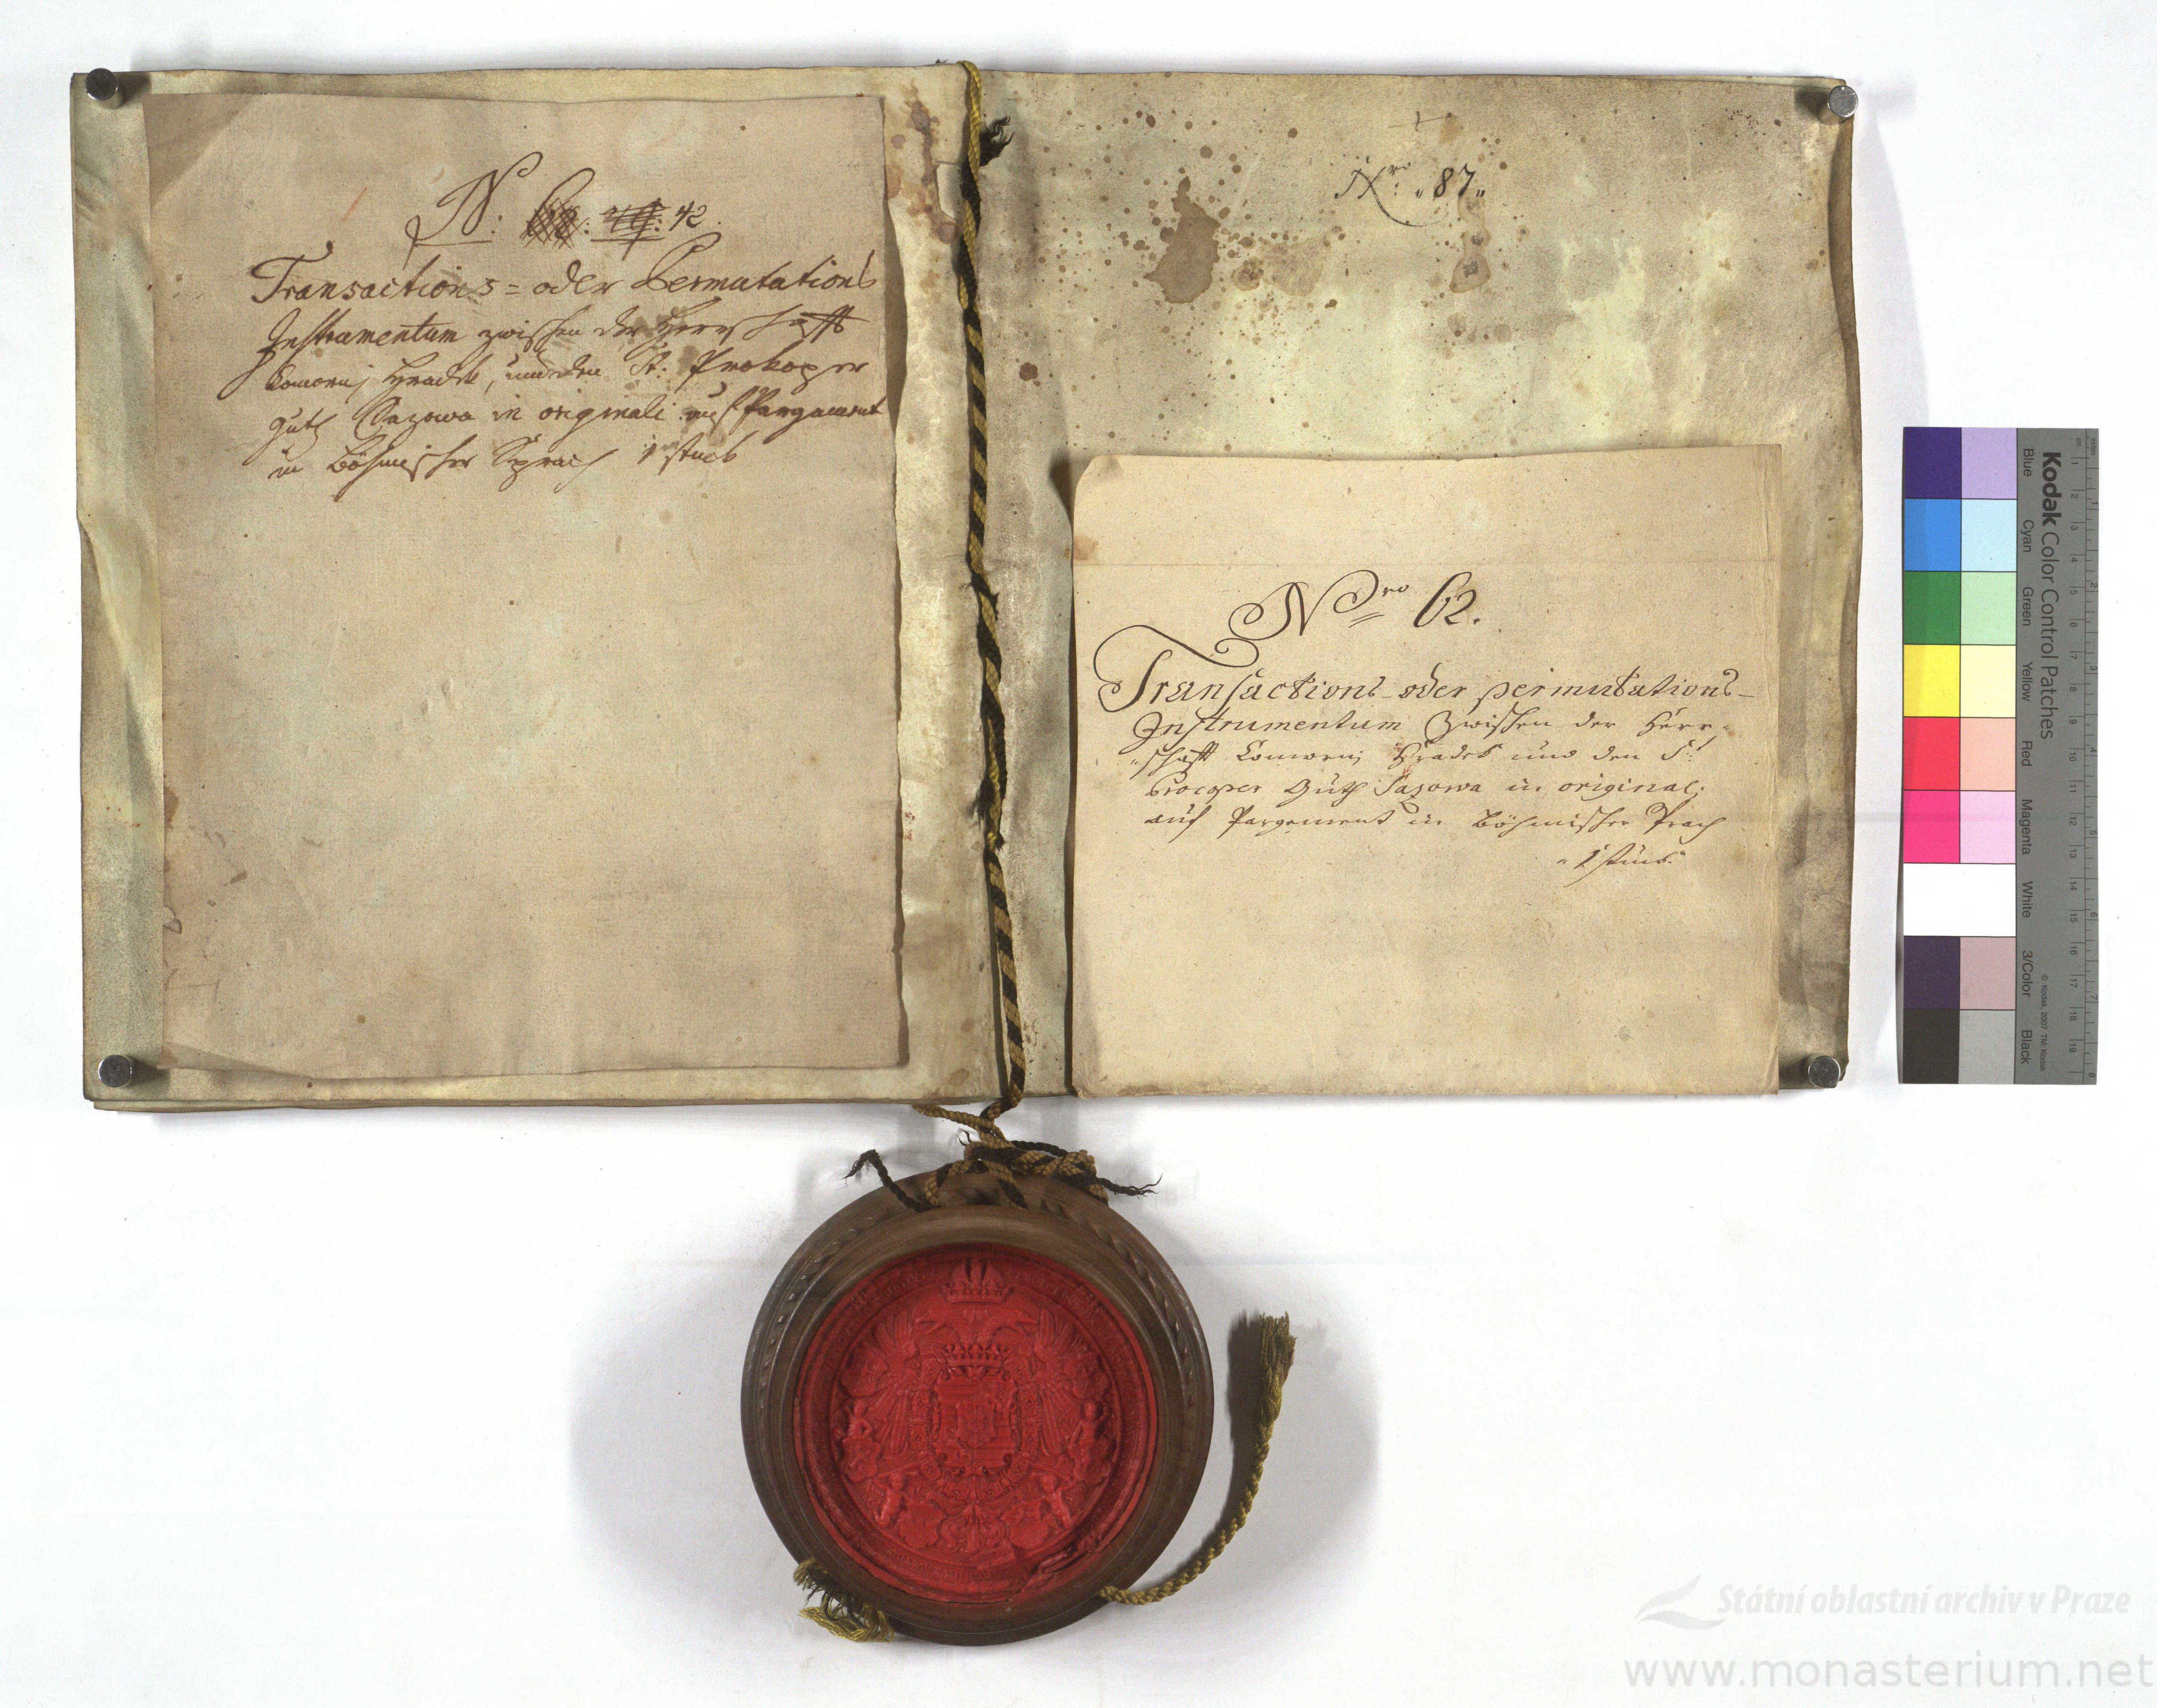 N: 62: 40: 42.
Transactions= oder Permutations
Instrumentum zwischen der Herrschafft
Comornj Hradek, und den St: Prokoper
guth Sazowa in originali auf Pargament
in Böhmischer Sprach 1 stuck
Nro: „87„
Nro 62.
Transactions- oder permutations-
Instrumentum Zwischen der Herr-
„schafft Comornj Hradek und den St:
Procoper Guth Sazowa in original:
auf Pargement in Böhmischer Sprach
„1 stuck„
Kodak Color Control Patches
Blue Cyan Green Yellow Red Magenta White 3/Color Black
© Kodak, 2007 TM: Kodak
Státní oblastní archiv v Praze
www.monasterium.net